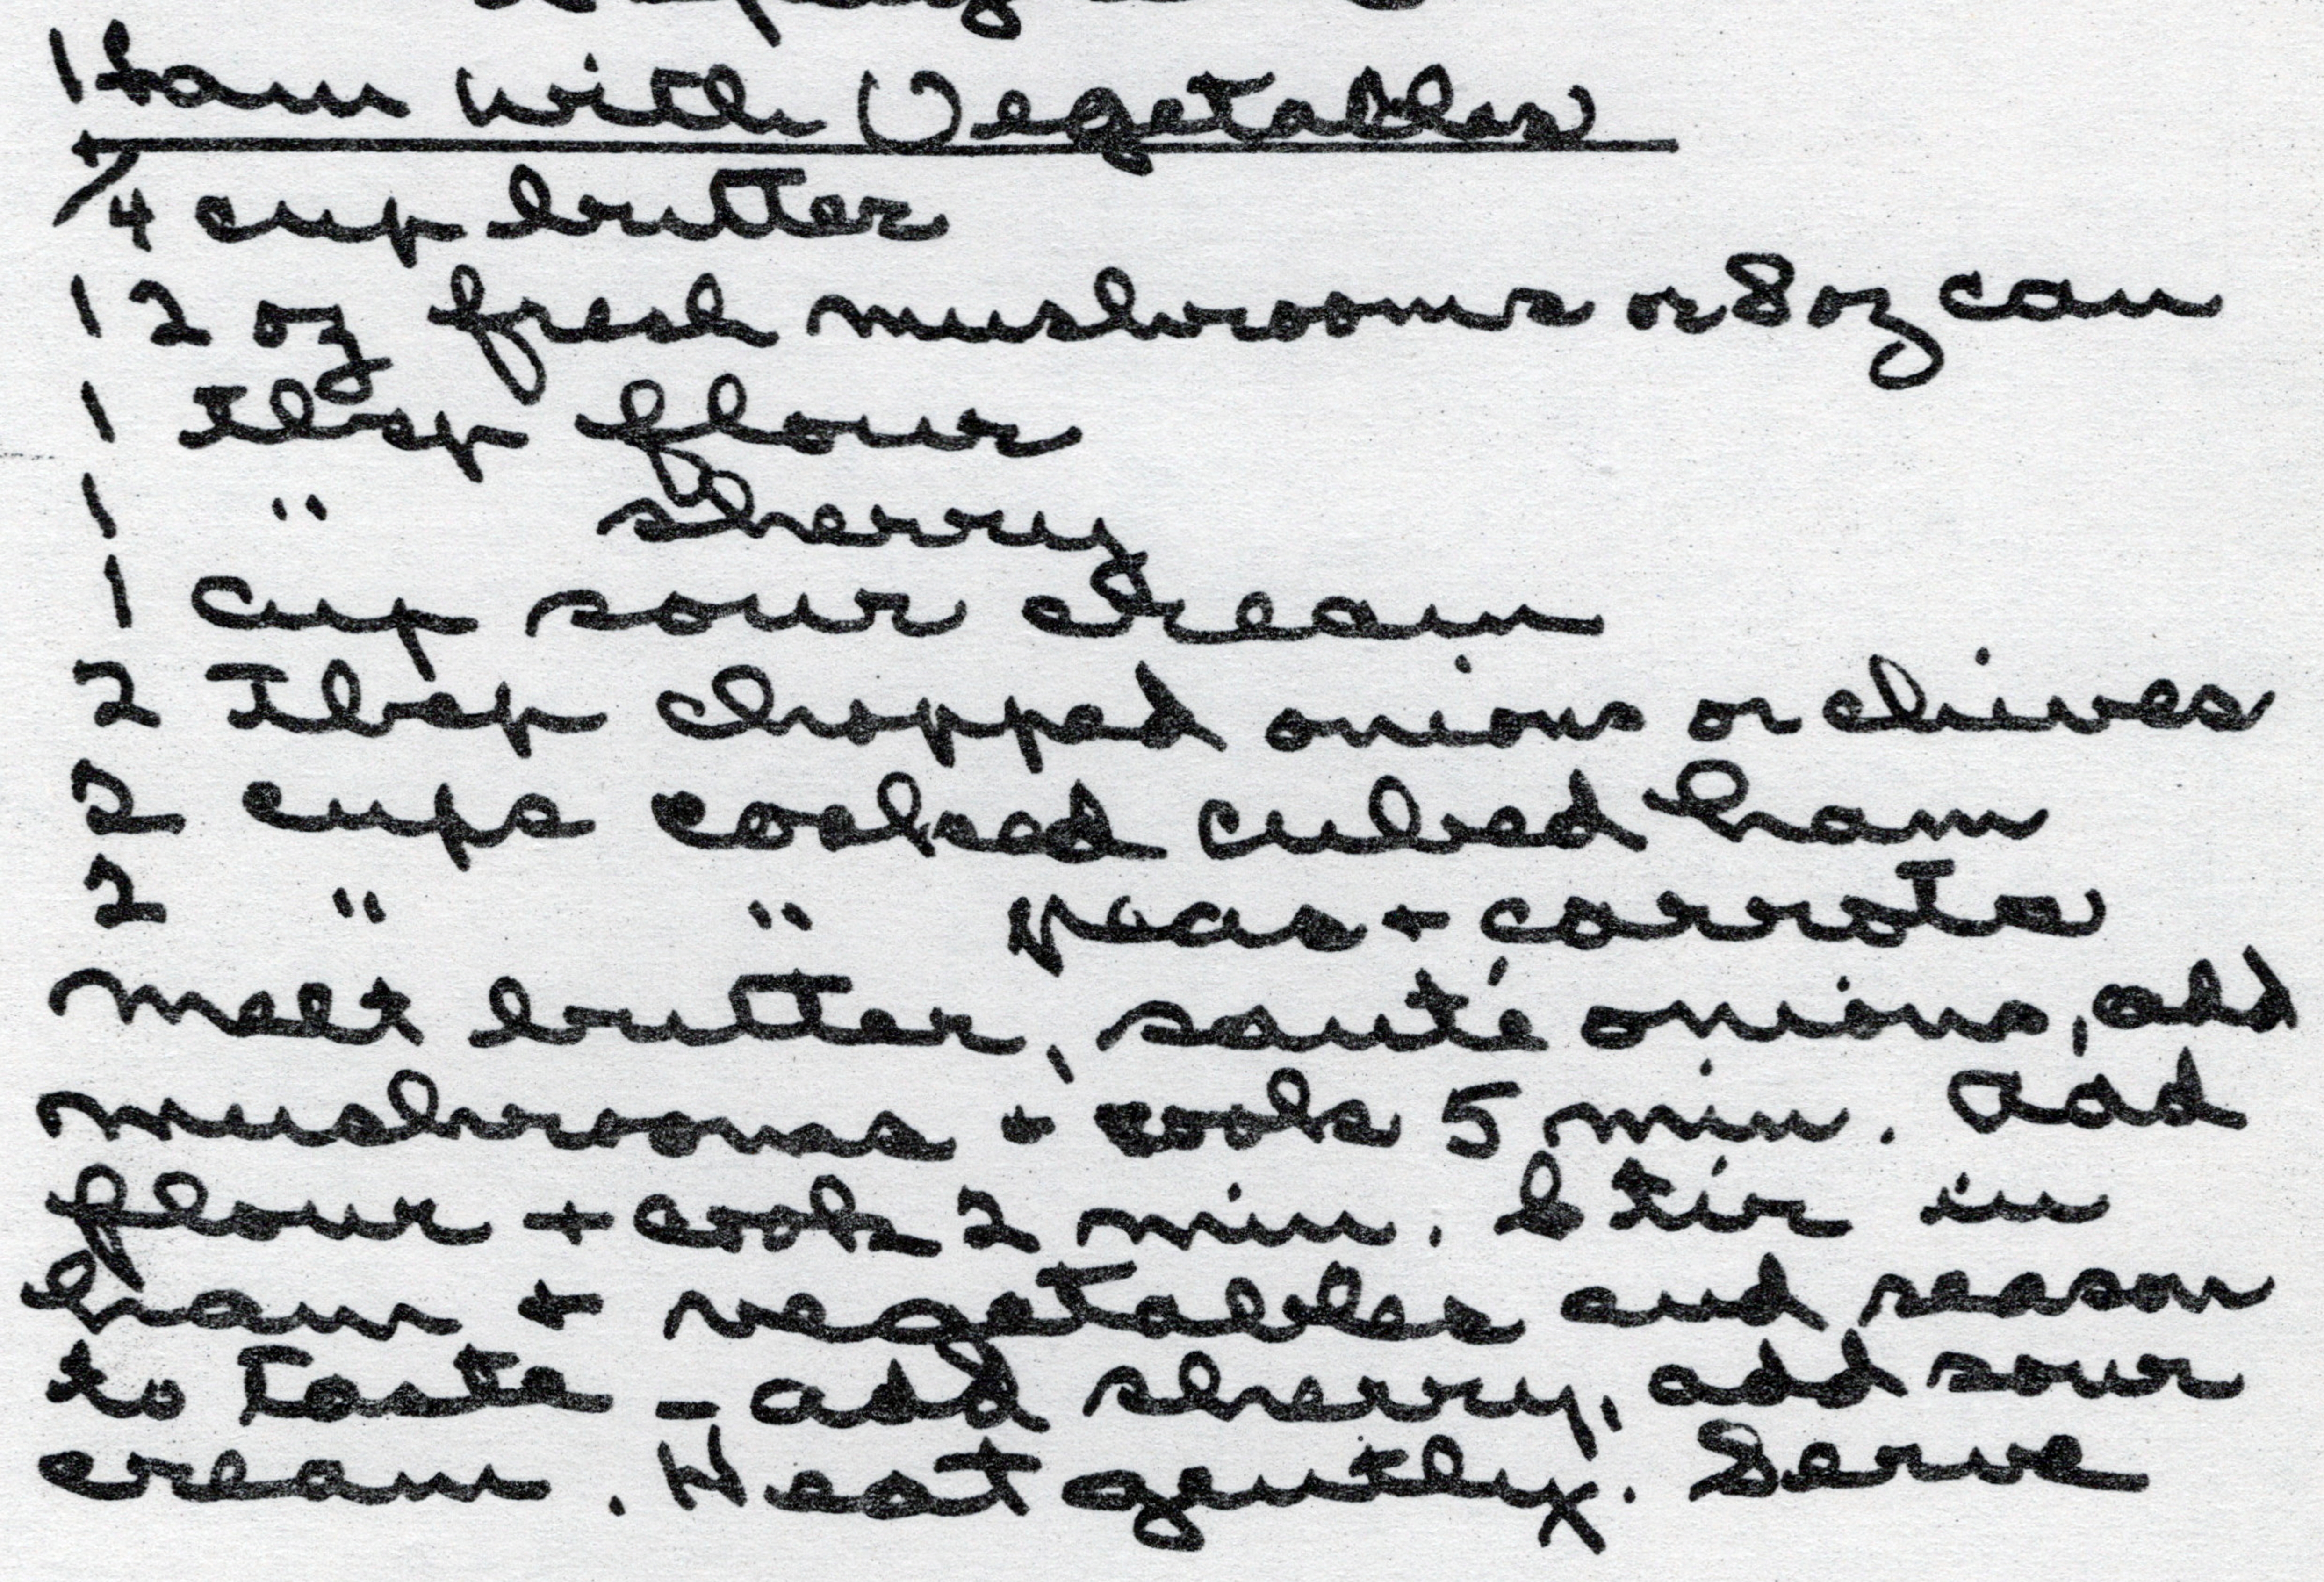 Ham with Vegetables
1/4 cup butter
12 oz fresh mushrooms or 8 oz can
1 Tbsp flour
1 " sherry
1 cup sour cream
2 Tbsp chopped onions or chives
2 cups cooked cubed ham
2 " " peas + carrots
Melt butter, sauté onions, add
mushrooms + cook 5 min. Add
flour + cook 2 min. Stir in
ham + vegetables and season
to taste - add sherry, add sour
cream. Heat gently. Serve